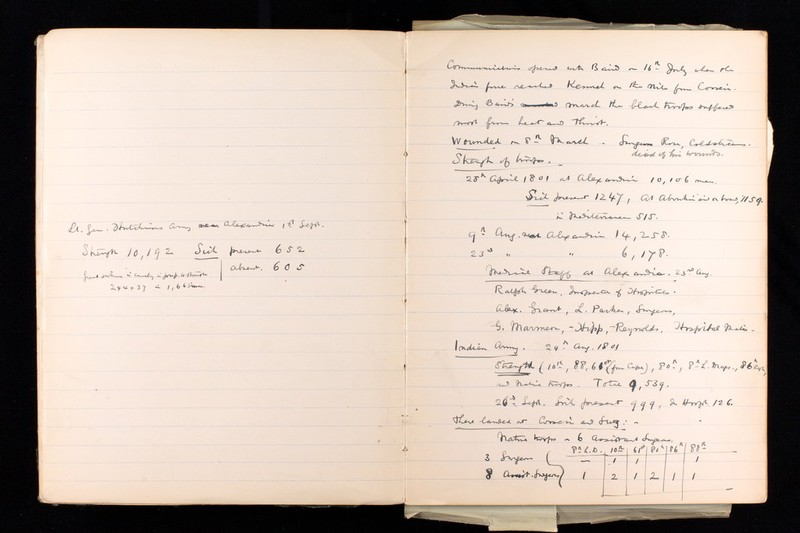 Lt. Gen. Hutchinsons army near Alexandria 1st Septr.
Strength 10,192 Sick present 652
absent. 605
Communications opened with Baird on 16th July when the
Indian force reached Kenneh on the Nile from Cosseir.
During Bairds march the black troops suffered
most from heat and Thirst.
Wounded on 8th March - Surgeon Rose, Coldstreams.
died of his wounds.
Strength of troops. -
28th April 1801 at Alexandria 10,106 men.
Sick present 1247, at Aboukir and on board, 1159.
in Mediterranean 515.
9th Aug. near Alexandria 14,258.
23rd " " 6,178.
Medical Staff at Alexandria. 23rd Aug.
Ralph Green, Inspector of Hospitals.
Alex. Grant, L. Parker, Surgeons,
G. Marmeon, - Hipp, - Reynolds, Hospital Mates.
Indian Army. 24th Aug. 1801
Strength (10th, 88, 61st (from Cape), 80th, 8th L. Drags., 86th
and Native troops. Total 9,539.
26th Septr. Sick present 999, in Hospl. 126.
There landed at Cosseir and Suez: -
Native troops - 6 Assistant Surgeons.
8th L.D. 10th 61st 80th 86th 88th
3 Surgeons — 1 1 1
8 Assist. Surgeons 1 2 1 2 1 1